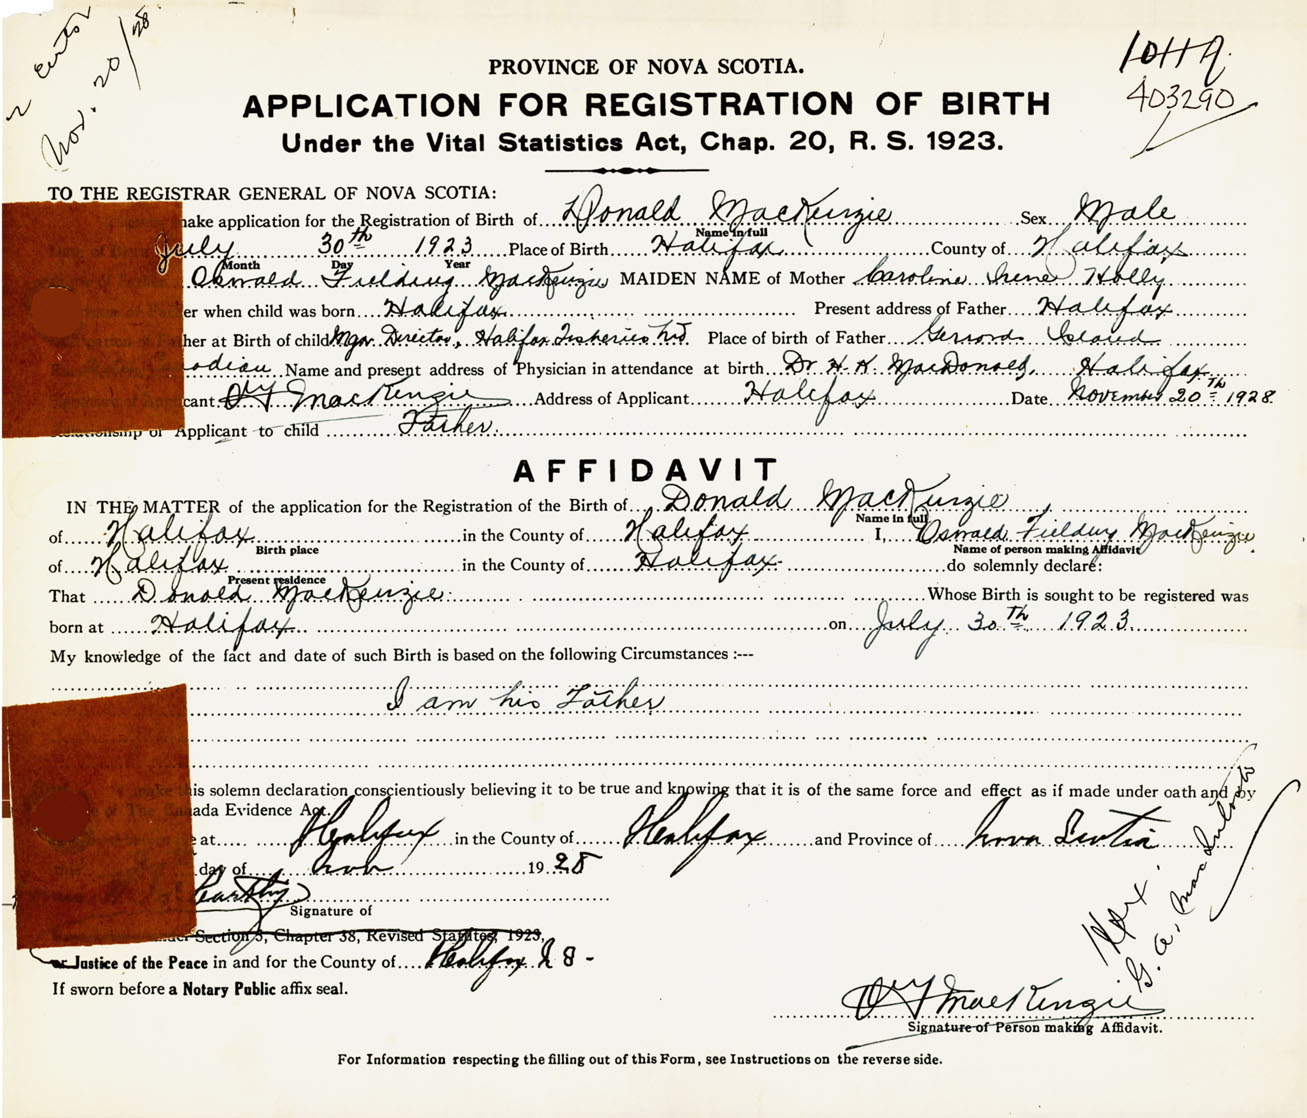 Nov. 20/28
1044
403290
PROVINCE OF NOVA SCOTIA.
APPLICATION FOR REGISTRATION OF BIRTH
Under the Vital Statistics Act, Chap. 20, R. S. 1923.
TO THE REGISTRAR GENERAL OF NOVA SCOTIA:
make application for the Registration of Birth of Donald MacKenzie Sex Male
Name in full
July 30th 1923 Place of Birth Halifax County of Halifax
Month Day Year
Oswald Fielding MacKenzie MAIDEN NAME of Mother Caroline Irene Holly
of Father when child was born Halifax Present address of Father Halifax
Father at Birth of child Mgr. Director, Halifax Fisheries Ltd. Place of birth of Father Gerrard Island
Canadian Name and present address of Physician in attendance at birth Dr. H. K. MacDonald, Halifax
Applicant OF MacKenzie Address of Applicant Halifax Date November 20th 1928
Relationship of Applicant to child Father.
AFFIDAVIT
IN THE MATTER of the application for the Registration of the Birth of Donald MacKenzie,
Name in full
of Halifax in the County of Halifax I, Oswald Fielding MacKenzie
Birth place Name of person making Affidavit
of Halifax in the County of Halifax do solemnly declare:
Present residence
That Donald MacKenzie Whose Birth is sought to be registered was
born at Halifax on July 30th 1923
My knowledge of the fact and date of such Birth is based on the following Circumstances :---
I am his Father
make this solemn declaration conscientiously believing it to be true and knowing that it is of the same force and effect as if made under oath and by
of The Canada Evidence Act.
at Halifax in the County of Halifax and Province of Nova Scotia
day of Nov 1928
Signature of
under Section 3, Chapter 38, Revised Statutes, 1923,
or Justice of the Peace in and for the County of Halifax N S -
If sworn before a Notary Public affix seal.
Hfx.
G. A. MacIntosh
OF MacKenzie
Signature of Person making Affidavit.
For Information respecting the filling out of this Form, see Instructions on the reverse side.